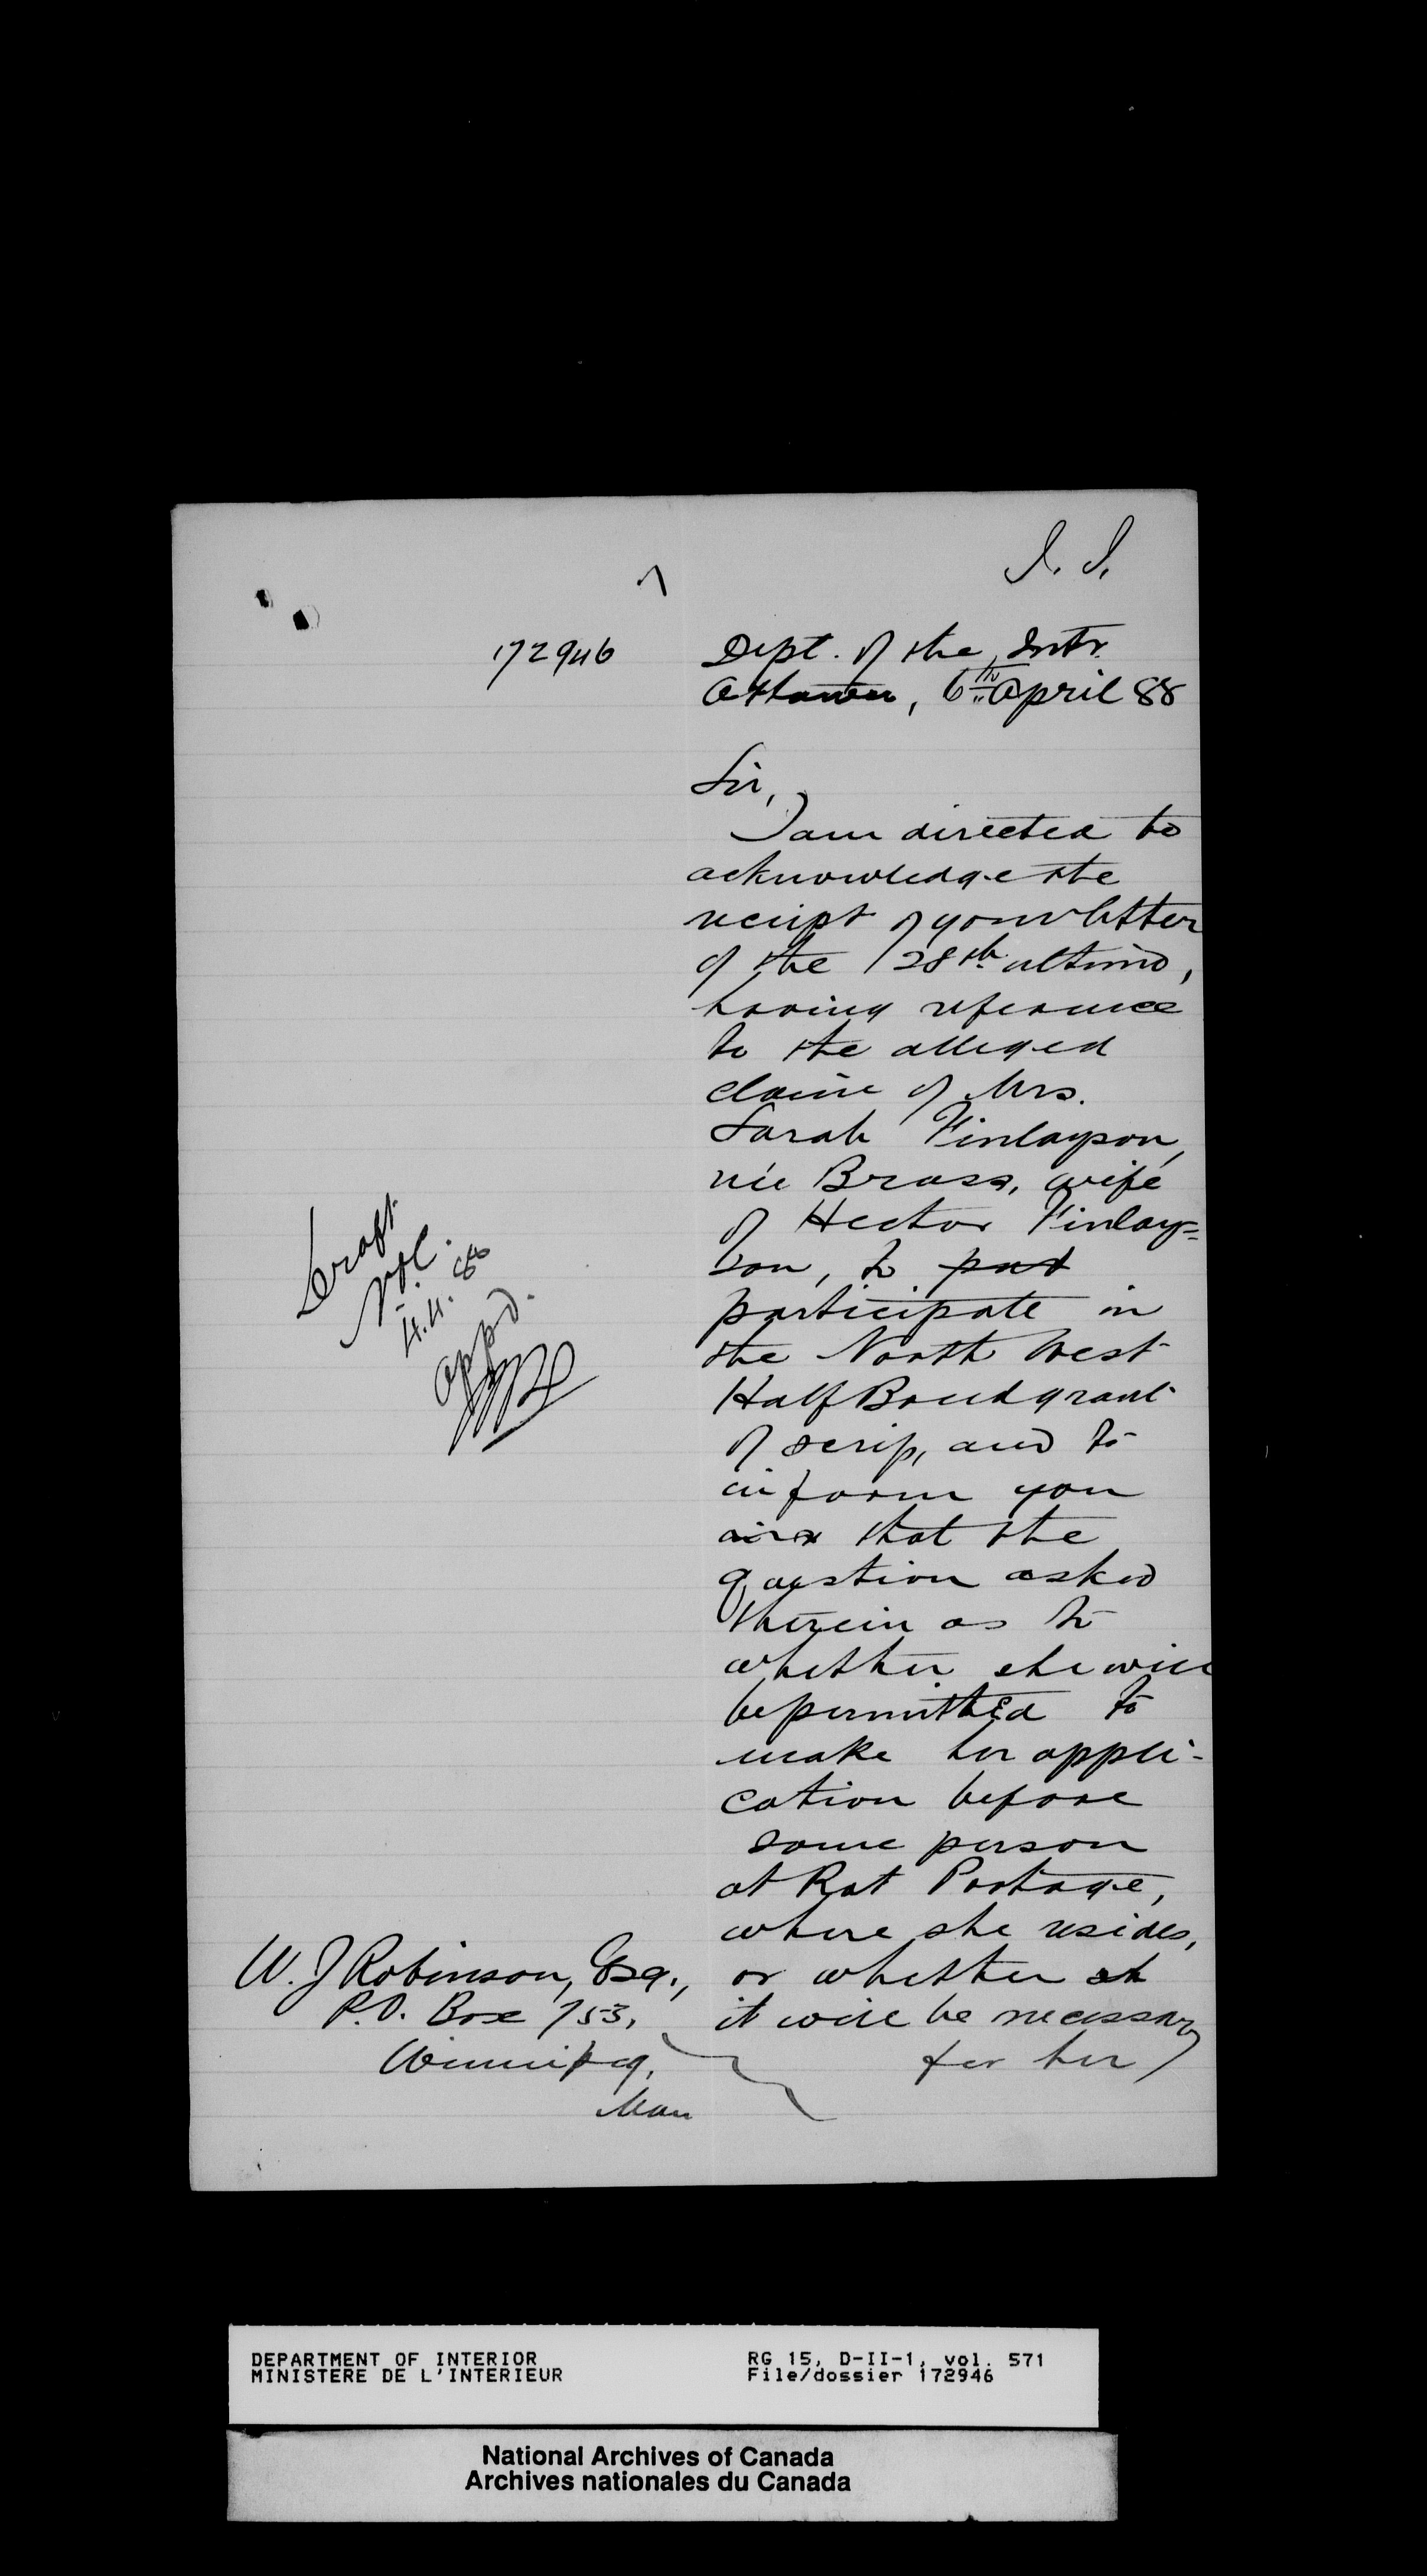 172946
Dept. of the Intr.
Ottawa, 6th April 88
Sir,
I am directed to
acknowledge the
receipt of your letter
of the 28th ultimo,
having reference
to the alleged
claim of Mrs.
Sarah Finlayson,
née Brass, wife
of Hector Finlay=
son, to part
participate in
the North West
Half Breed grant
of scrip, and to
inform you
that the
question asked
therein as to
whether she will
be permitted to
make her appli-
cation before
some person
at Rat Portage,
where she resides,
or whether sh
it will be necessary
for her
Draft
4.4.88
appd.
W. J Robinson, Esq.,
P.O. Box 753,
Winnipeg,
Man
DEPARTMENT OF INTERIOR
MINISTERE DE L'INTERIEUR
RG 15, D-II-1, vol. 571
File/dossier 172946
National Archives of Canada
Archives nationales du Canada